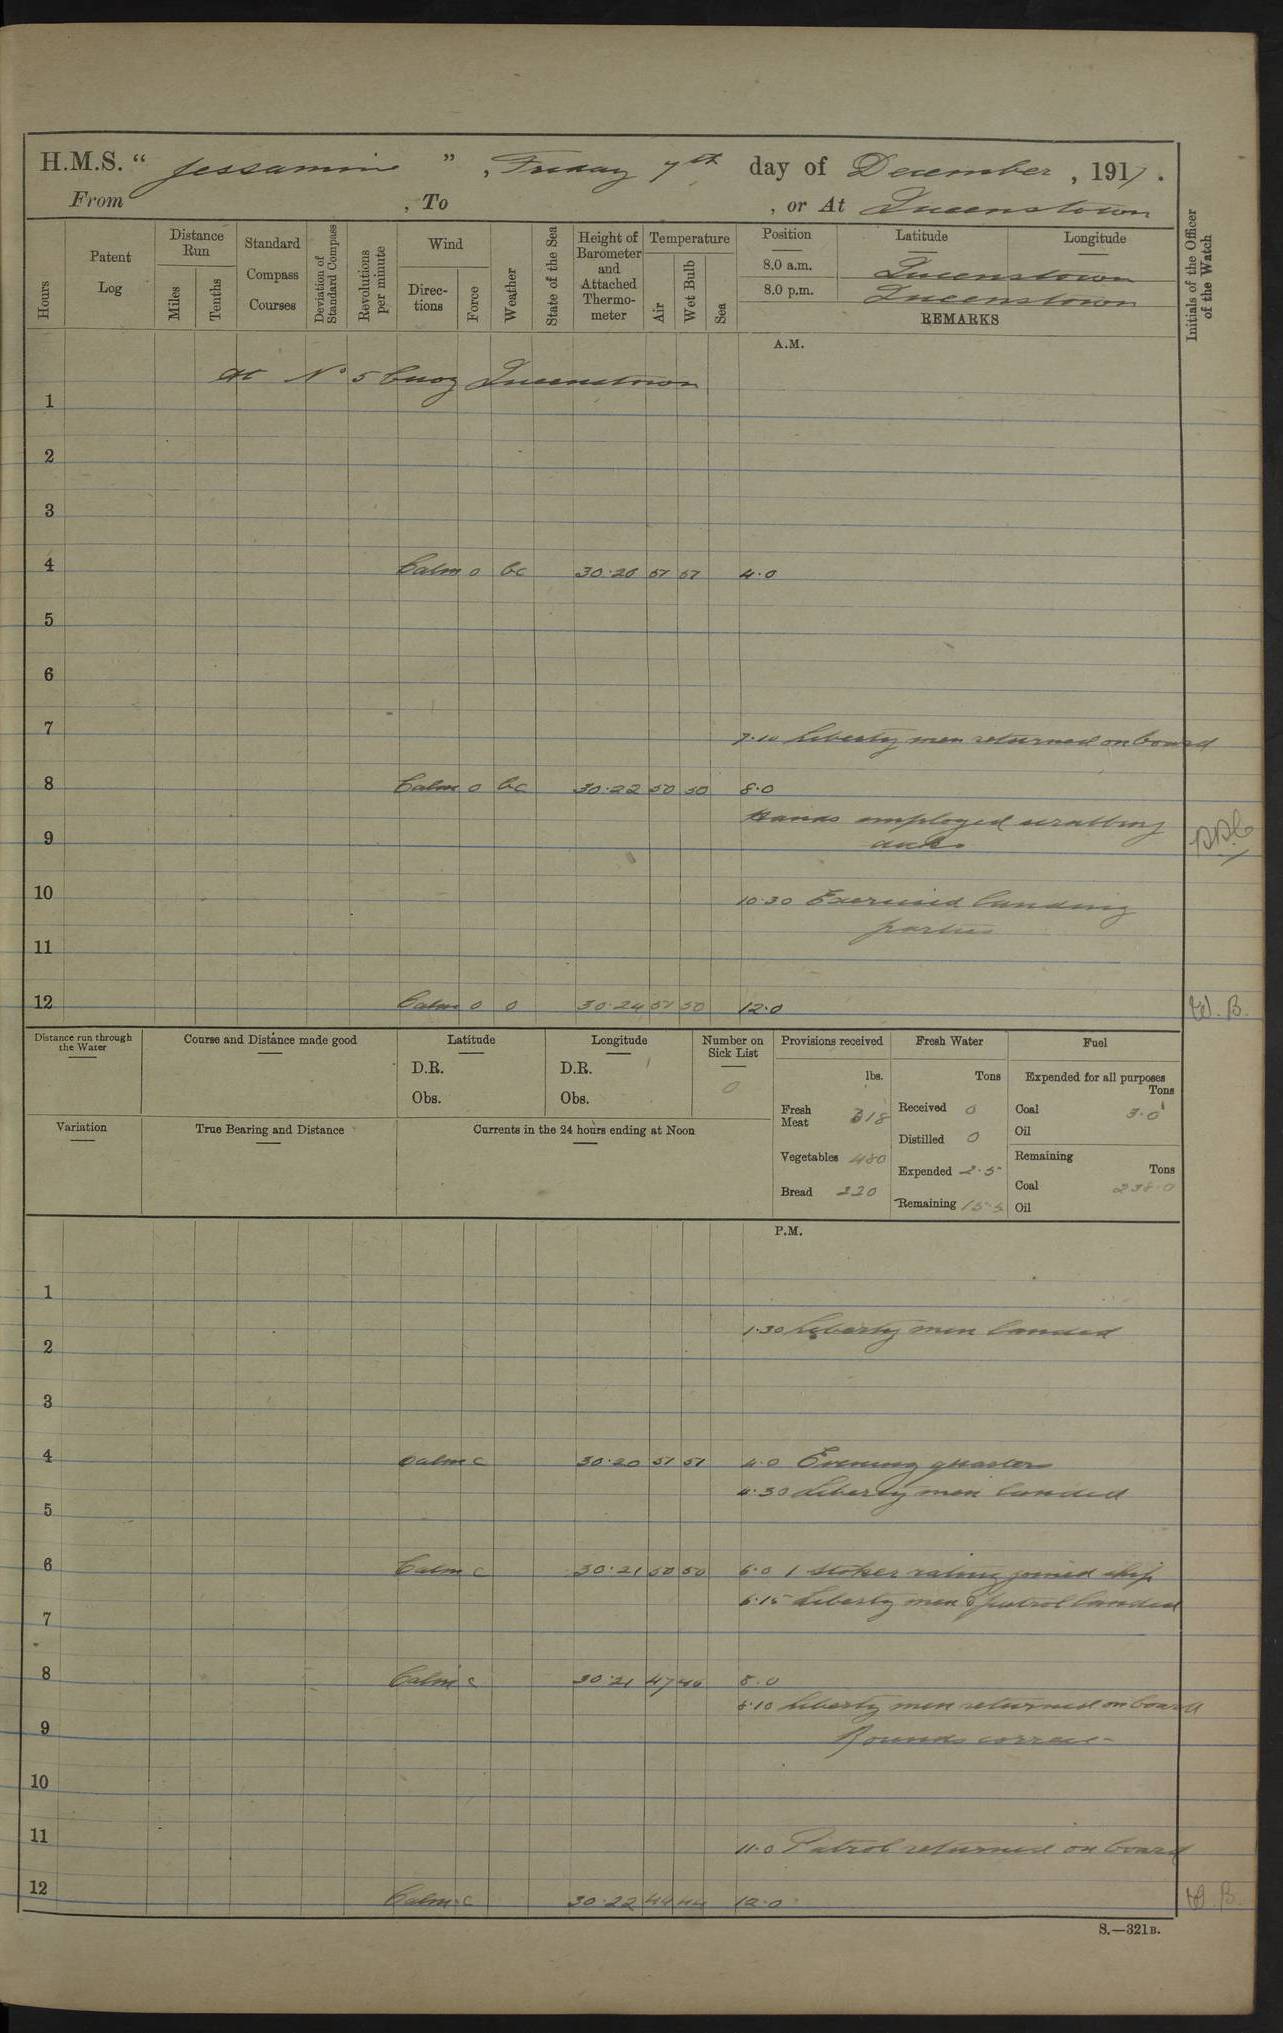 H.M.S. " Jessamine ", Friday 7th day of December, 1917.
From , To , or At Queenstown
Hours
Patent Log
Distance Run
Miles
Tenths
Standard Compass Courses
Deviation of Standard Compass
Revolutions per minute
Wind
Directions
Force
Weather
State of the Sea
Height of Barometer and Attached Thermometer
Temperature
Air
Wet Bulb
Sea
Position Latitude Longitude
8.0 a.m. Queenstown
8.0 p.m. Queenstown
REMARKS
Initials of the Officer of the Watch
A.M.
At No 5 buoy Queenstown
1
2
3
4 Calm 0 bc 30.26 51 51 4.0
5
6
7
7.10 Liberty men returned on board
8 Calm 0 bc 30.22 50 50 8.0
Hands employed
9
10
10.30 Exercised landing
parties
11
12 Calm 0 0 30.24 51 50 12.0 W.B.
Distance run through the Water
Course and Distance made good
Latitude
D.R.
Obs.
Longitude
D.R.
Obs.
Number on Sick List
0
Provisions received
lbs.
Fresh Meat 318
Vegetables 480
Bread 220
Fresh Water
Tons
Received 0
Distilled 0
Expended 2.5
Remaining 15.5
Fuel
Expended for all purposes
Tons
Coal 3.0
Oil
Remaining
Tons
Coal 238.0
Oil
Variation
True Bearing and Distance
Currents in the 24 hours ending at Noon
P.M.
1
1.30 Liberty men landed
2
3
4 Calm c 30.20 51 51 4.0 Evening quarters
4.30 Liberty men landed
5
6 Calm c 30.21 50 50 6.0 1 stoker rating joined ship
6.15 Liberty men & patrol landed
7
8 Calm c 30.21 47 46 8.0
8.10 Liberty men returned on board
9 Rounds correct
10
11
11.0 Patrol returned on board
12 Calm c 30.22 44 44 12.0 W.B.
S.—321B.